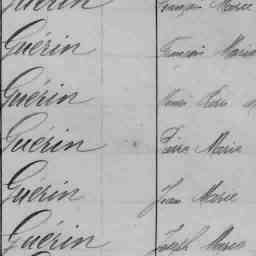 Guérin François Marie
Guérin François Marie
Guérin Marie Rose
Guérin Pierre Marie
Guérin Jean Marie
Guérin Joseph Marie